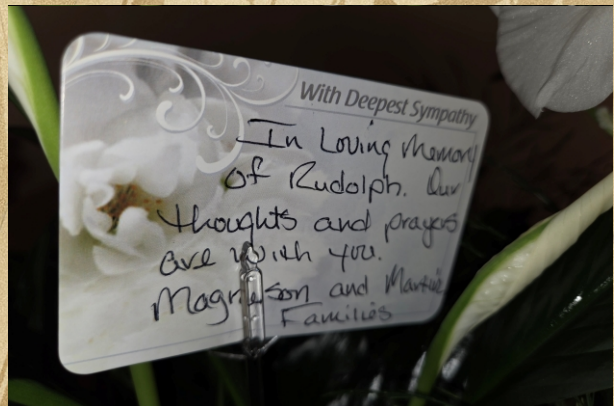 With Deepest Sympathy
In Loving Memory
of Rudolph. Our
thoughts and prayers
are with you.
and
Families